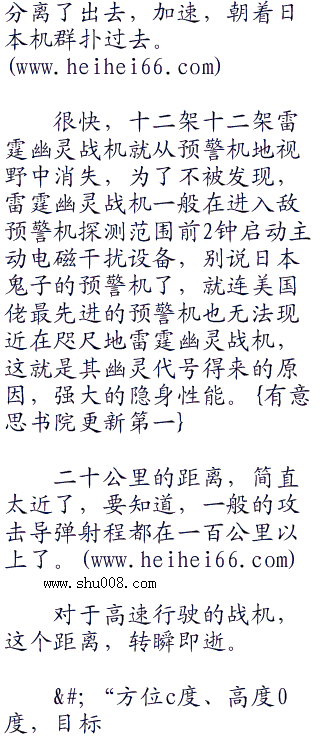 分离了出去，加速，朝着日
本机群扑过去。
(www.heihei66.com)
很快，十二架十二架雷
霆幽灵战机就从预警机地视
野中消失，为了不被发现，
雷霆幽灵战机一般在进入敌
预警机探测范围前2钟启动主
动电磁干扰设备，别说日本
鬼子的预警机了，就连美国
佬最先进的预警机也无法现
近在咫尺地雷霆幽灵战机，
这就是其幽灵代号得来的原
因，强大的隐身性能。{有意
思书院更新第一}
二十公里的距离，简直
太近了，要知道，一般的攻
击导弹射程都在一百公里以
上了。(www.heihei66.com)
www.shu008.com
对于高速行驶的战机，
这个距离，转瞬即逝。
&#; “方位c度、高度0
度，目标